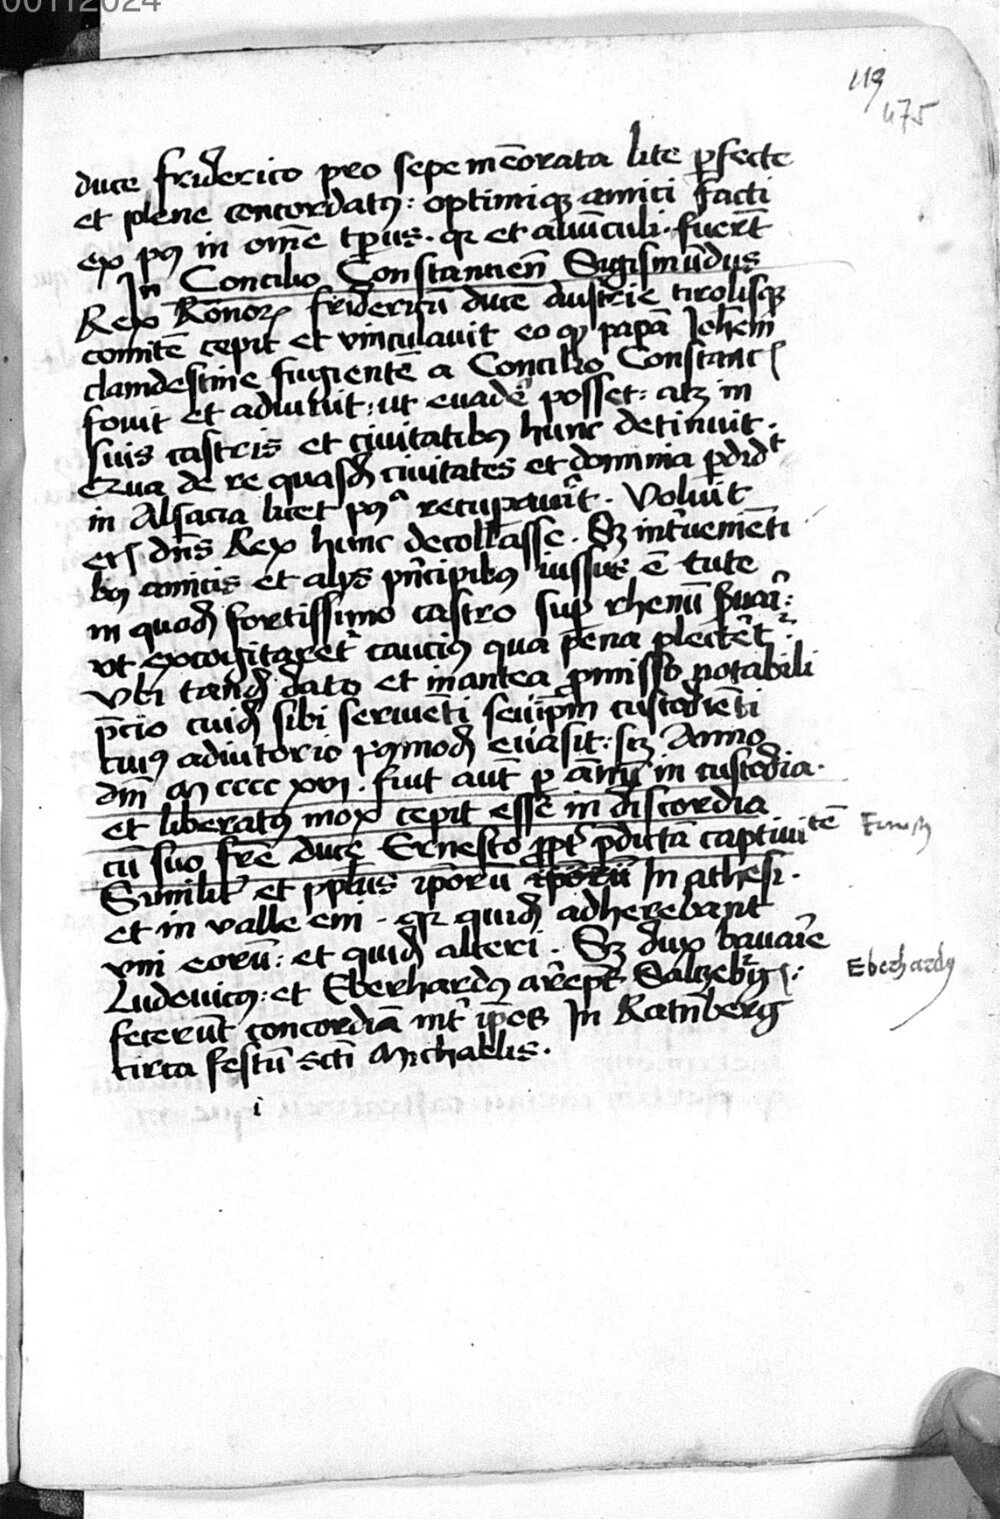 00112024
119
475
duce friderico pro sepe mēorata lite ꝑfecte
et plene concordatꝰ: optimiqꝫ amici facti
ex pꝰ in om̄e tp̄us. qꝛ et auūculi. fuer̄t
In Concilio Constantien̄ Sigismūdus
Rex Romōꝝ fridericū duce Austrie tirolisqꝫ
comitē cepit et vinculauit eo qꝫ papā Joh̄em
clamdestine fugientē a Concilio Constanc
fouit et adiuuit: ut euadē posset: atqꝫ in
suis castris et ciuitatibꝫ hunc detinuit.
et qua de re quasdā ciuitates et dominia ꝑdidt
in Alsacia licet pꝰ recupauīt. Voluit
dn̄s Rex hunc decollasse. Sꝫ int̄uenieti
bꝫ amicis et alijs pn̄cipibꝫ iussus ē tute
in quodā fortissimo castro sup rhenū s̄uari:
vt excogitaret caucius qua pena plectet.
Vbi tandē dato et inantea ꝓmisso notabili
p̄cio cuidā sibi seruiēti seuip̄m custodiēti
cuiꝰ adiutorio euasit: scꝫ Anno
dm̄ M cccc xvi. fuit aut̄ ꝑ annū in custodia.
et liberatꝰ mox cepit esse in discordia
cū suo fr̄e duce Ernesto ꝓpt̄ p̄dictā captiuitē
Ernestꝰ
Similit̄ et pp̄lus ip̄orū ip̄orū In athesi.
et in valle eni. qꝛ quidā adherebant
vni eorū: et quidā alteri. Sꝫ dux bauarie
Ludeuicꝰ: et Eberhardꝰ arēp̄t Salzeburg:
Eberhardꝰ
fecerūt concordiā int̄ ip̄os In Ratnberg
circa festū scti Michaelis.
i